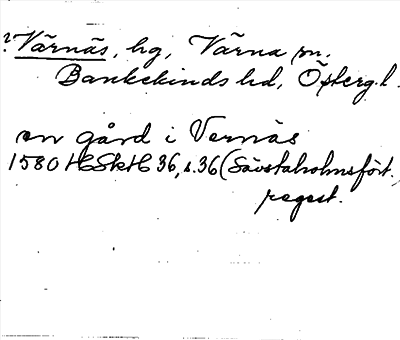 ? Värnäs, hg, Värna sn.
Bankekinds hd, Östergl.
en gård i Vernäs
1580 HSkH 36, s. 36 (Sävstaholmsfört.,
regest.